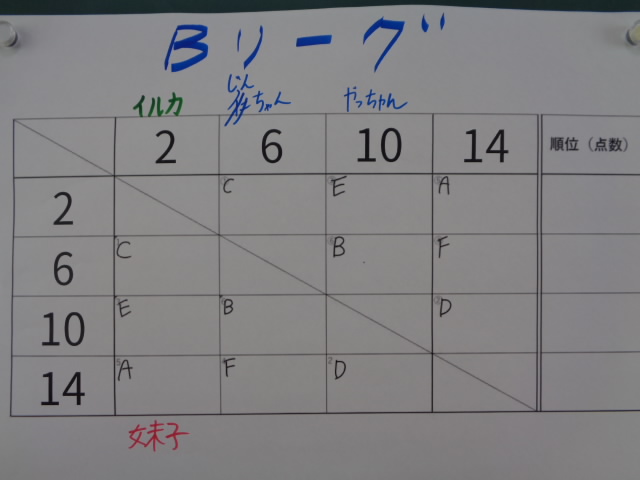 Bリーグ
イルカ じん ちゃん やっちゃん
2 6 10 14 順位（点数）
2 C E A
6 C B F
10 E B D
14 A F D
妹子